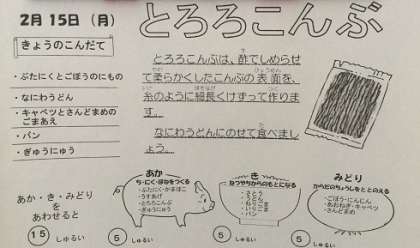 2月 15日 (月)
とろろこんぶ
きょうのこんだて
・ぶたにくとごぼうのにもの
・なにわうどん
・キャベツとさんどまめの
ごまあえ
・パン
・ぎゅうにゅう
とろろこんぶは、酢でしめらせ
て柔らかくしたこんぶの表面を、
糸のように細長くけずって作りま
す。
なにわうどんにのせて食べまし
ょう。
あか・き・みどり
をあわせると
15 しゅるい
あか
ち・にく・ほねをつくる
・ぶたにく・かまぼこ
・うすあげ
・とろろこんぶ
・ぎゅうにゅう
5 しゅるい
き
ねつやちからのもとになる
・うどん
・パン
5 しゅるい
みどり
からだのちょうしをととのえる
・ごぼう・にんじん
・あおねぎ・キャベツ
・さんどまめ
5 しゅるい